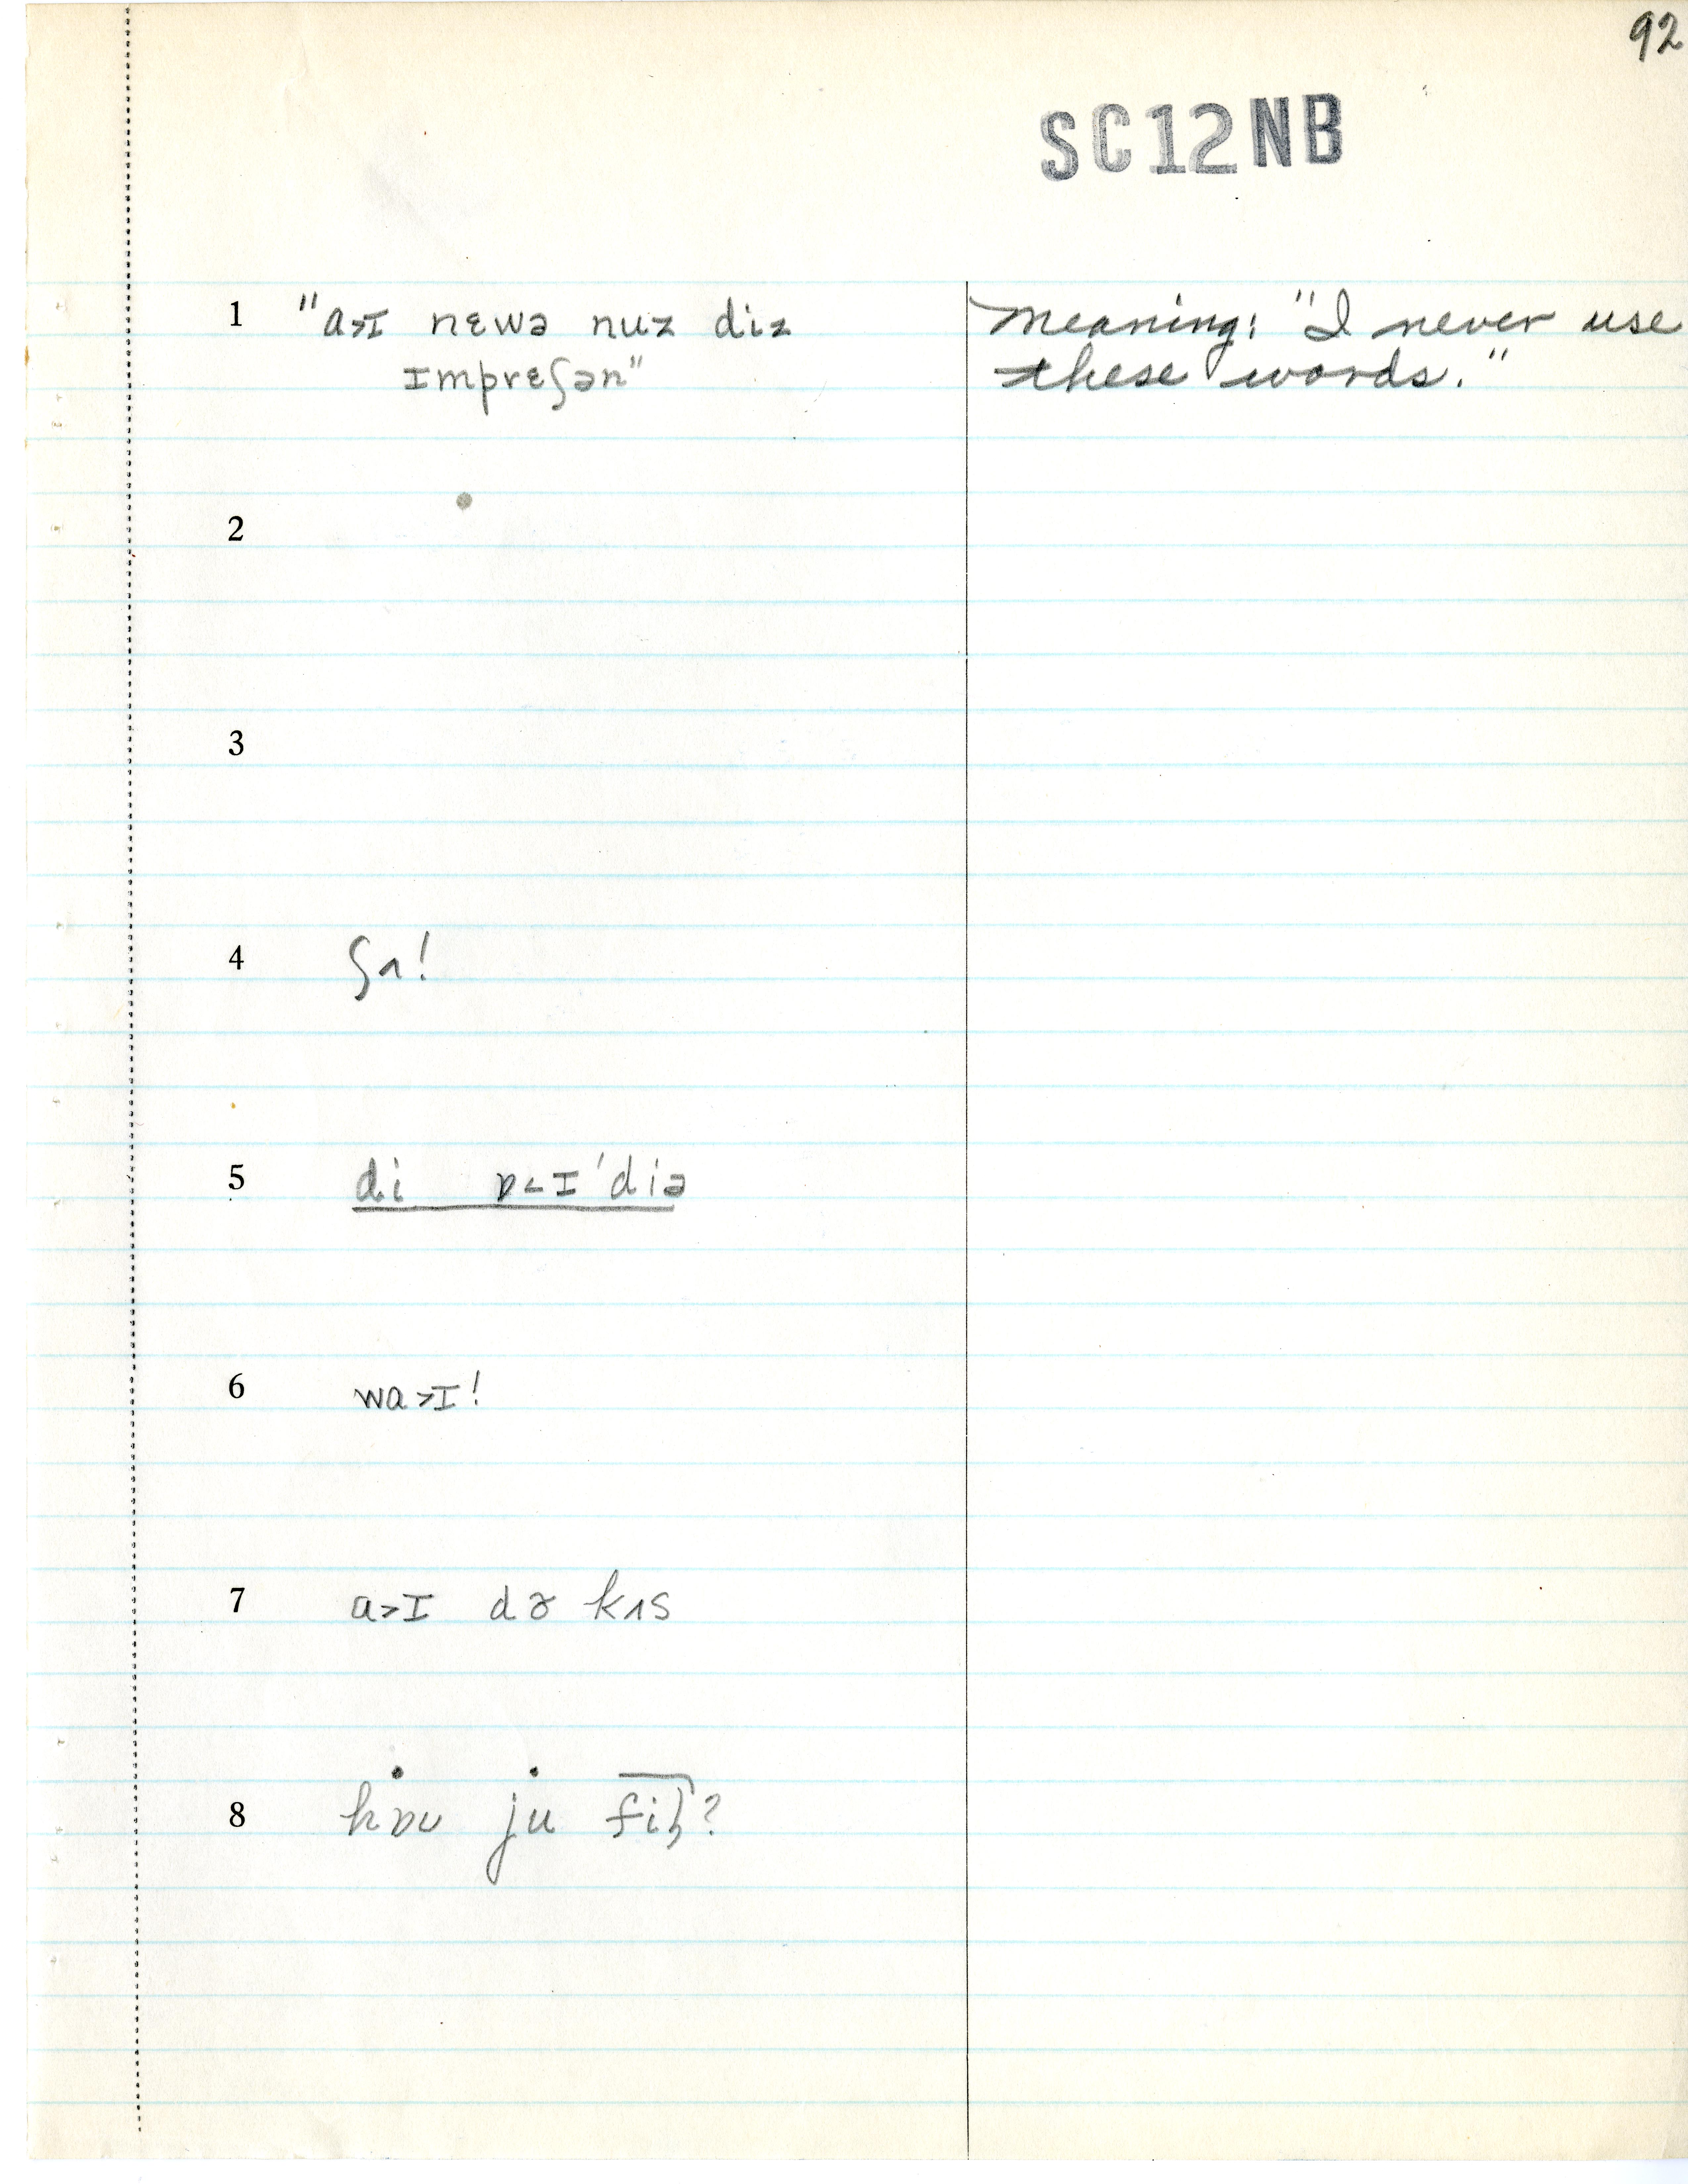 92
SC12NB
1 "a>ɪ nɛwə nuz diz
ɪmprɛʃən"
Meaning: "I never use
these words."
2
3
4 ʃʌ!
5 di ɒ<ɪ'diə
6 wa>ɪ!
7 a>ɪ də kʌs
8 hɒu ju fil?